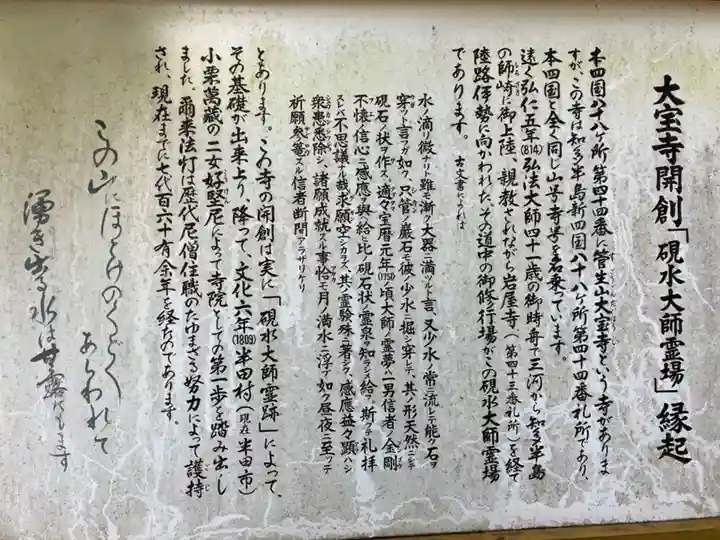 大宝寺開創「硯水大師霊場」縁起
本四国八十八ケ所第四十四番に菅生山大宝寺という寺がありま
すが、この寺は知多半島新四国八十八ケ所第四十四番札所であり、
本四国と全く同じ山号寺号を名乗っています。
遠く弘仁五年(814)弘法大師四十一歳の御時舟で三河から知多半島
の師崎に御上陸、親教されながら岩屋寺(第四十三番札所)を経て
陸路伊勢に向かわれた、その道中の御修行場がこの硯水大師霊場
であります。 古文書によれば
水ノ滴リ微ナリト雖モ漸ク大器ニ満ツル言、又少水ノ常ニ流レテ能ク石ヲ
穿ツト言フガ如ク、只管ニ巌石モ彼ノ少水ニ掘シ穿レテ、其ノ形天然ニシテ
硯石ノ状ヲ作ス。適々宝暦元年(1751)ノ頃大師ノ霊夢ハ一男信者ノ金剛
不懐ノ信心ニ感應ヲ與給ヒ比ノ硯石状ノ霊泉ヲ知ラシメ給フ、斯クテ礼拝
スレバ不思議ナル哉求願空シカラズ、其ノ霊験殊ニ著シク、感應益々顕ハシ
衆患悉除シ、諸願成就スル事恰モ月ノ満水ニ浮ブガ如ク昼ニ夜ニ至ッテ
祈願参篭スル信者断間アラザリケリ
とあります。この寺の開創は実に「硯水大師霊跡」によって、
その基礎が出来上り、降って、文化六年(1809)半田村(現在半田市)
小栗萬蔵の二女好堅尼によって寺院としての第一歩を踏み出し
ました。爾来法灯は歴代尼僧住職のたゆまざる努力によって護持
され、現在までに七代百六十有余年を経たのであります。
この山にほとけのくどく
あらわれて
湧き出る水は甘露